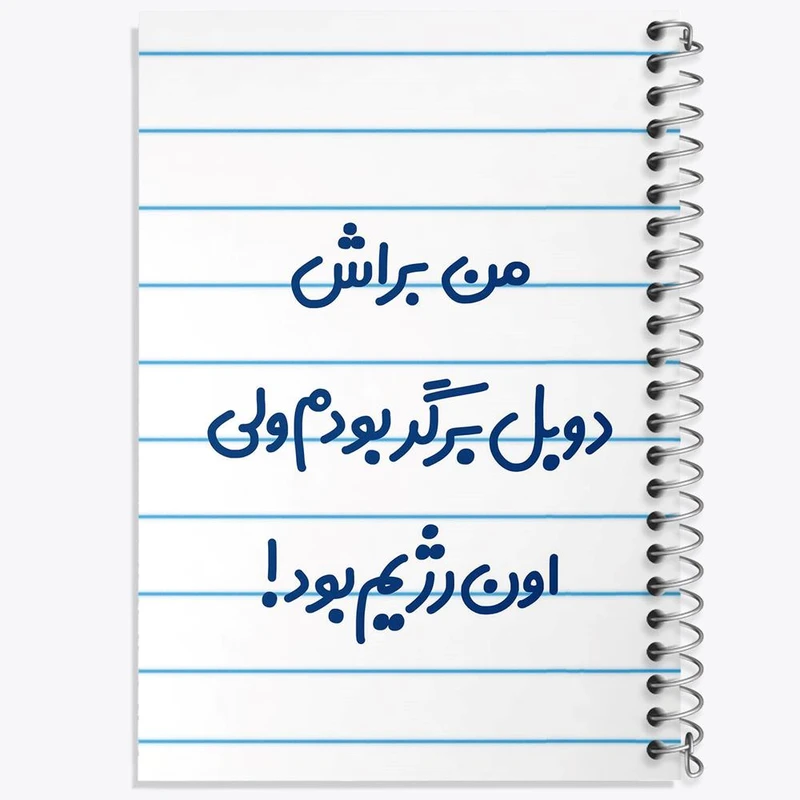 من براش
دوبل برگر بودم ولی
اون رژیم بود!